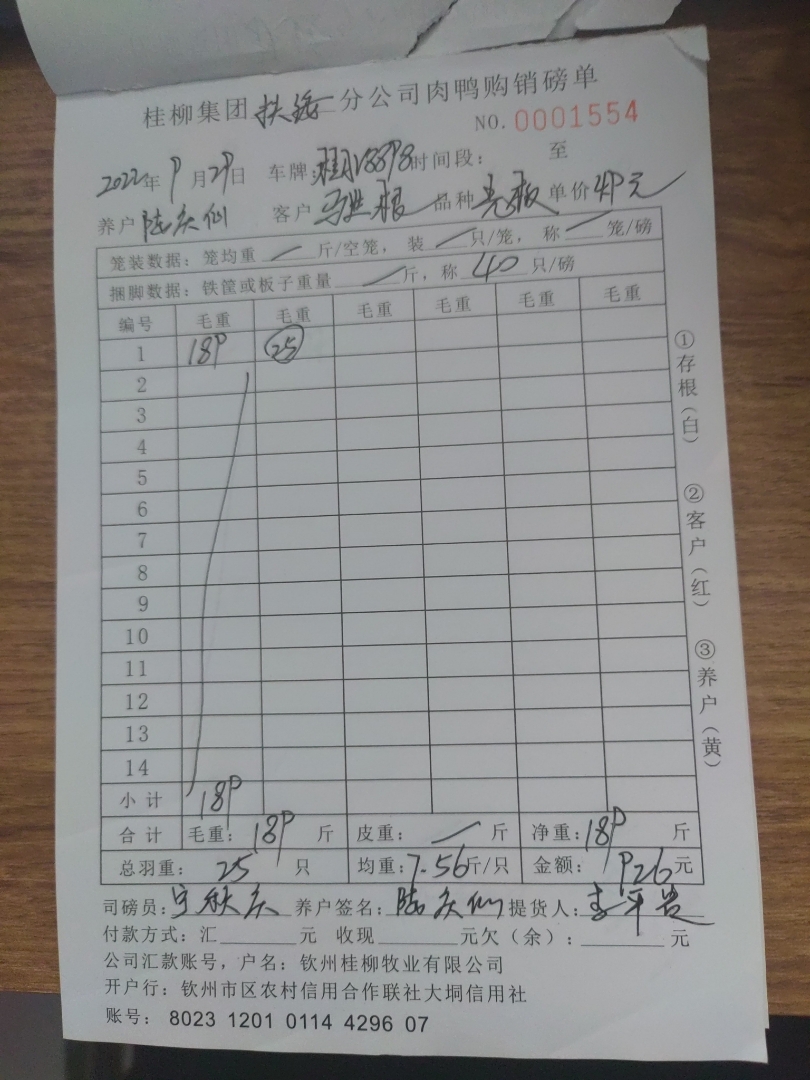 桂柳集团扶绥分公司肉鸭购销磅单
NO. 0001554
2022年9月29日 车牌: 时间段: 至
养户 陆庆仙 客户 品种 单价 4.9元
笼装数据: 笼均重 / 斤/空笼, 装 / 只/笼, 称 / 笼/磅
捆脚数据: 铁筐或板子重量 / 斤, 称 40 只/磅
编号 毛重 毛重 毛重 毛重 毛重 毛重
1 189 25
2
3
4
5
6
7
8
9
10
11
12
13
14
小计 189
合计 毛重: 189 斤 皮重: / 斤 净重: 189 斤
总羽重: 25 只 均重: 7.56斤/只 金额: 926元
司磅员: 养户签名: 陆庆仙 提货人:
付款方式: 汇 元 收现 元欠(余): 元
公司汇款账号, 户名: 钦州桂柳牧业有限公司
开户行: 钦州市区农村信用合作联社大垌信用社
账号: 8023 1201 0114 4296 07
①存根(白)
②客户(红)
③养户(黄)